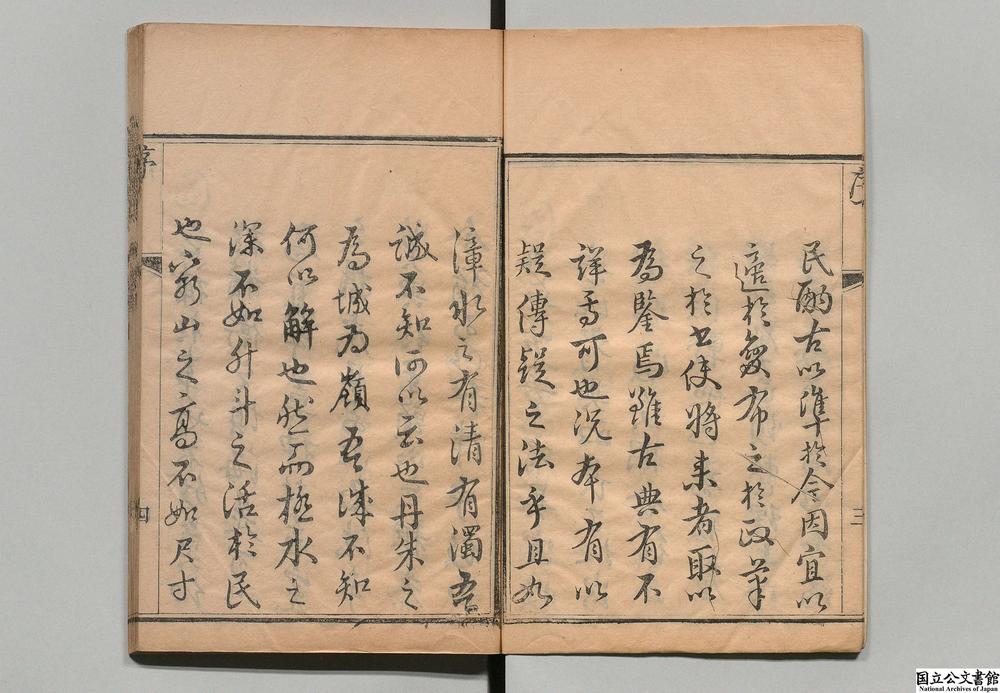 序
民酌古以準於今因宜以
適於變布之於政筆
之於書使將来者取以
為鑒焉雖古典有不
詳焉可也況本有以
疑傳疑之法乎且如
三
漳水之有清有濁吾
誠不知何以云也丹朱之
為城為嶺吾誠不知
何以解也然而極水之
深不如升斗之活於民
也窮山之高不如尺寸
序
四
国立公文書館
National Archives of Japan